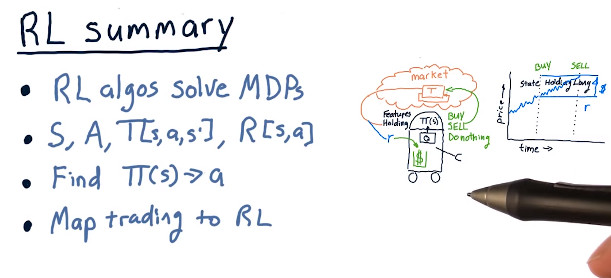 RL summary
• RL algos solve MDPs
• S, A, T[s,a,s'], R[s,a]
• Find π(s)→a
• Map trading to RL
market
T
Features
Holding
π(s)
BUY
SELL
Do nothing
Q
r
$
C
BUY SELL
State Holding Long
$
r
price →
time →